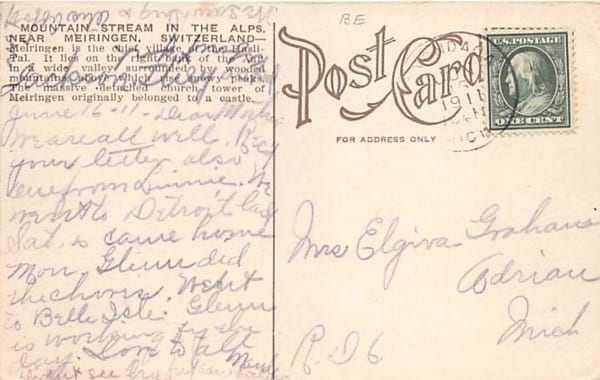 MOUNTAIN STREAM IN THE ALPS,
NEAR MEIRINGEN, SWITZERLAND—
Meiringen is the chief village of the Hasli-
Tal. It lies on the right bank of the Aar
in a wide valley, surrounded by wooded
mountains, above which snowy peaks.
The massive detached church tower of
Meiringen originally belonged to a castle.
June 16-11- Dear Mother
We are all well. Rec'd
your letter also
one from Linnie. We
went to Detroit last
Sat. & came home
Mon. Glenn did
the chores. Went
to Belle Isle. Glenn
is working by the
day. Love to all
BE
Post Card
FOR ADDRESS ONLY
1911
MICH
U.S. POSTAGE
ONE CENT
Mrs Elgiva Graham
Adrian
Mich
R.D 6.